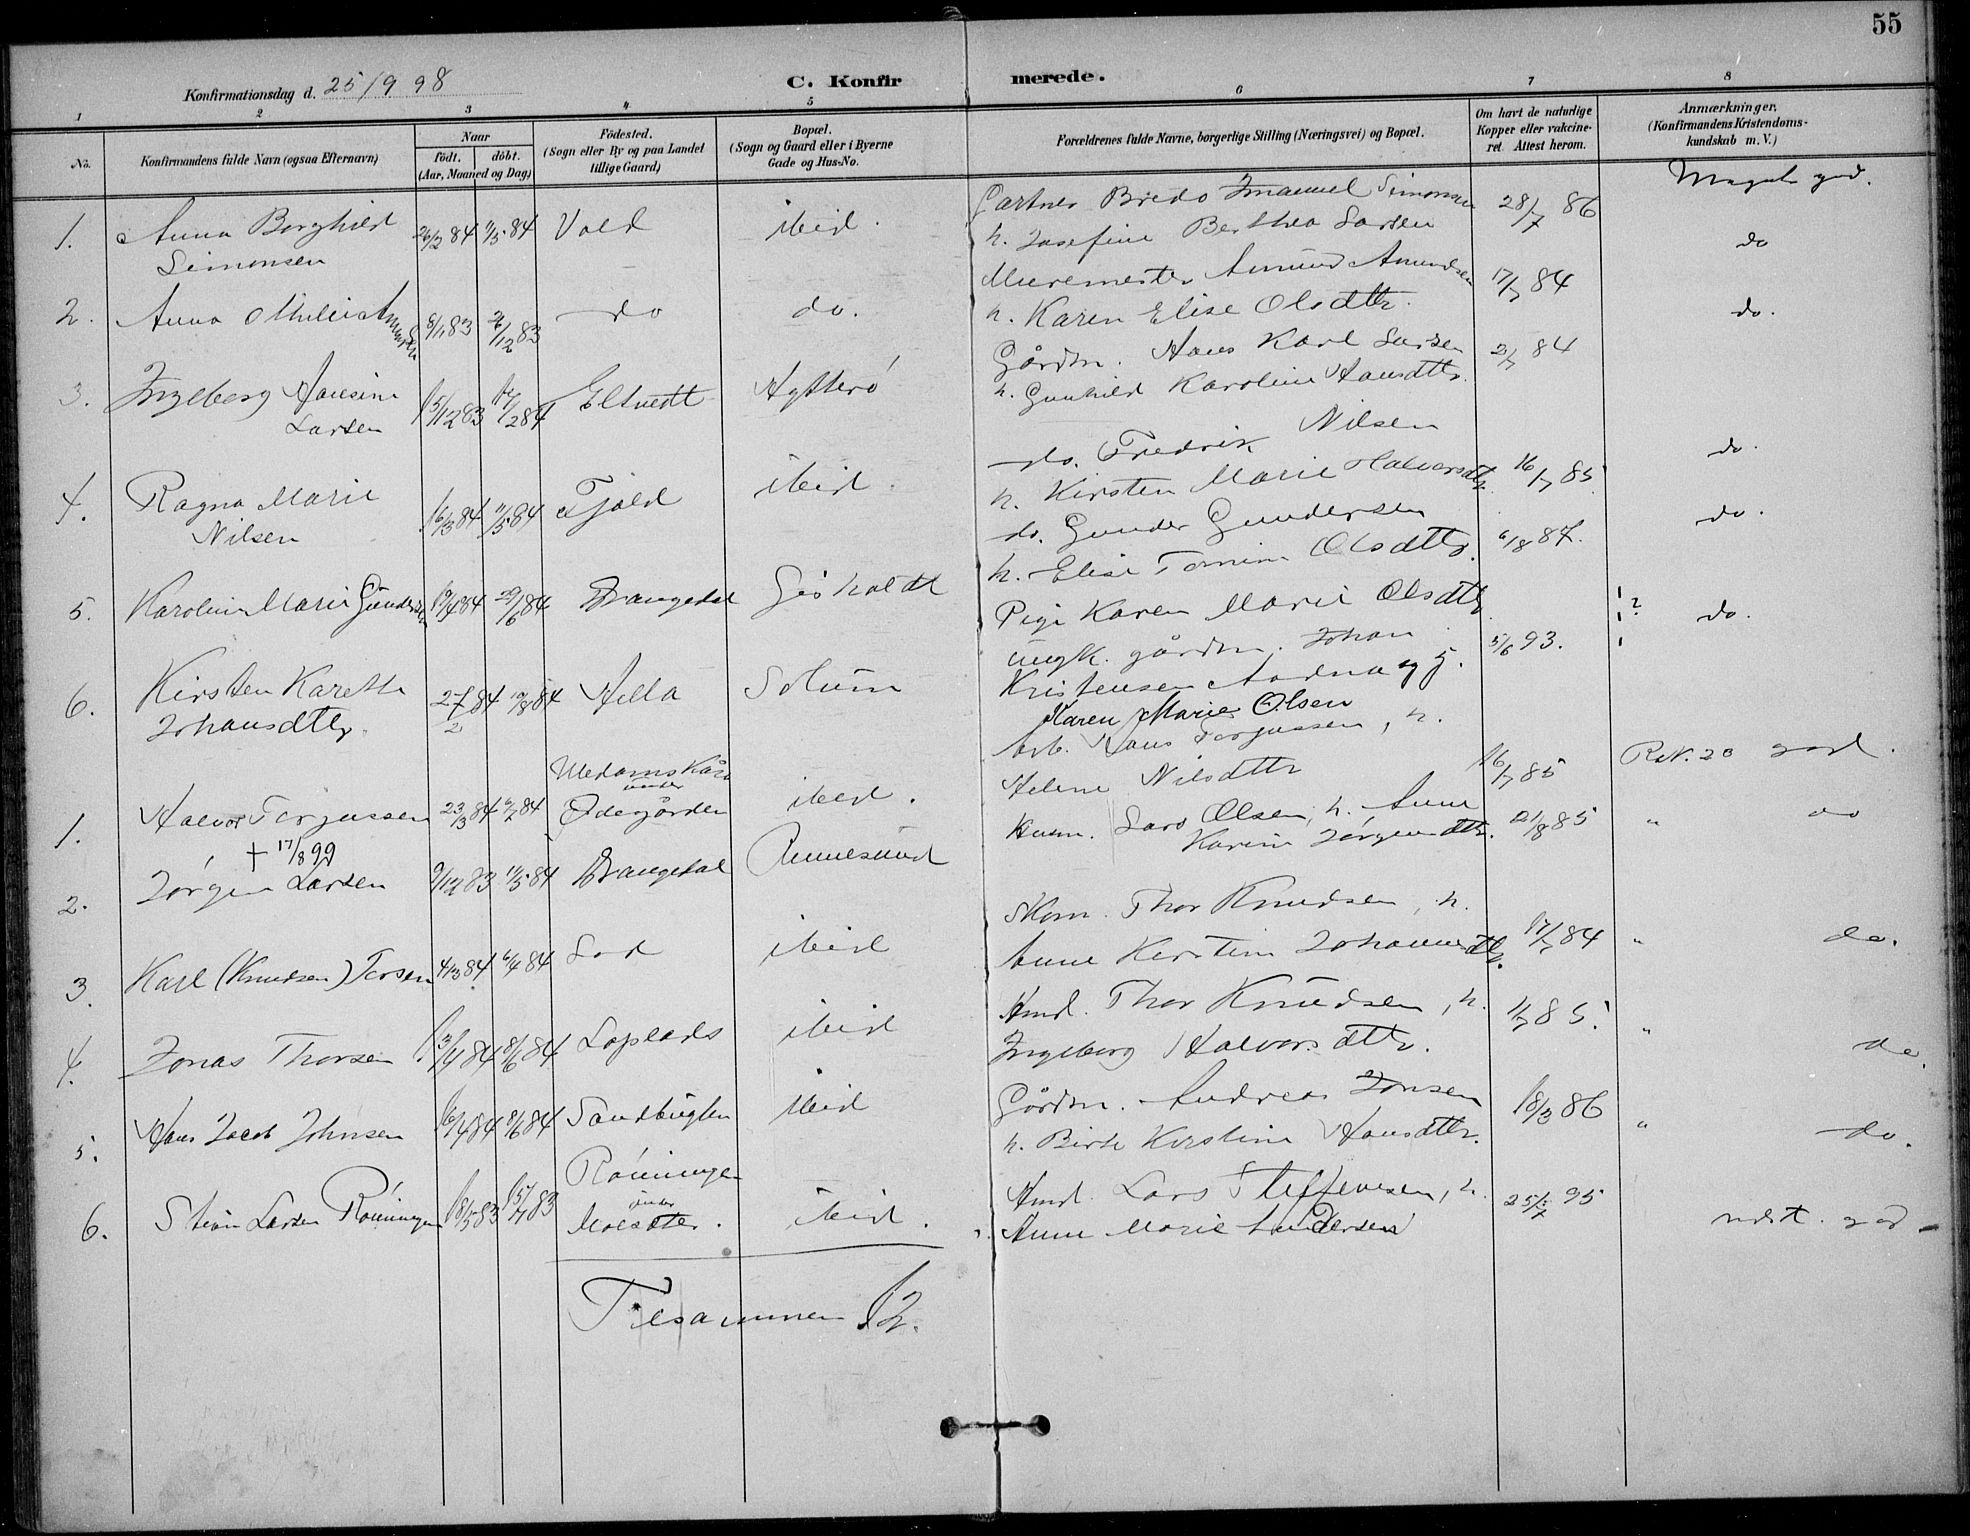 55
Konfirmationsdag d. 25/9 98
C. Konfir merede.
1 2 3 4 5 6 7 8
No.
Konfirmandens fulde Navn (ogsaa Efternavn)
Naar
födt. döbt.
(Aar, Maaned og Dag)
Födested.
(Sogn eller By og paa Landet
tillige Gaard)
Bopæl.
(Sogn og Gaard eller i Byerne
Gade og Hus-No.
Forældrenes fulde Navne, borgerlige Stilling (Næringsvei) og Bopæl.
Om havt de naturlige
Kopper eller vakcine-
ret. Attest herom.
Anmærkninger.
(Konfirmandens Kristendoms-
kundskab m. V.)
1. Anna Borghild 26/2 84 11/5 84 Vold ibid. Gartner Bredo Imanuel Simonsen 28/7 86 Meget god.
Simonsen h. Josefine Berthea Larsen
2. Anna Othilie Amundsen 8/11 83 26/12 83 do do. Muremester Amund Amundsen 17/7 84 do
h. Karen Elise Olsdtr.
3. Ingeborg Hansine 15/12 83 17/2 84 Eltvedt Gårdm. Hans Karl Larsen 2/7 84 do.
Larsen h. Gunhild Karoline Hansdtr.
4. Ragna Marie 16/3 84 11/5 84 ibid. do. Fredrik Nilsen 16/7 85 do.
Nilsen h. Kirsten Marie Halvorsdtr.
5. Karoline Marie Gundersen 19/4 84 29/6 84 Drangedal do. Gunder Gundersen 6/8 87. do.
h. Elise Tomine Olsdtr.
6. Kirsten Karette 27/2 84 10/8 84 Solum Pige Karen Marie Olsdtr 5/6 93. ? do.
Johansdtr. ungk. gårdm. Johan
Kristensen
Karen Marie Olsen
1. Halvor Torjussen 23/3 84 84 under ibid. Arb. Hans Torjussen, h. 16/7 85 god.
Ødegården Helene Nilsdtr
+ 17/8 99
2. Jörgen Larsen 9/12 83 11/5 84 Drangedal Husm. Lars Olsen, h. Anne 21/8 85 " do
Karine Jørgensdtr.
3. Karl (Knudsen) Torsen 4/3 84 6/4 84 ibid Skom. Thor Knudsen, h. 17/7 84 " do.
Anne Kerstine Johannesdtr.
4. Jonas Thorsen 13/4 84 8/6 84 ibid Thor Knudsen, h. 1/7 85. " do
Ingeborg Halvorsdtr.
5. Hans Jacob Johnsen 16/4 84 8/6 84 Sandbugten ibid Gårdm. Andreas Jonsen 18/3 86 " do.
h. Birte Kirstine Hansdtr.
6. Larsen Röiningen 18/5 83 15/7 83 Röiningen ibid. Lars Steffensen, h. 25/7 95 god
under
Anne Marie Andersen
Tilsammen 12.